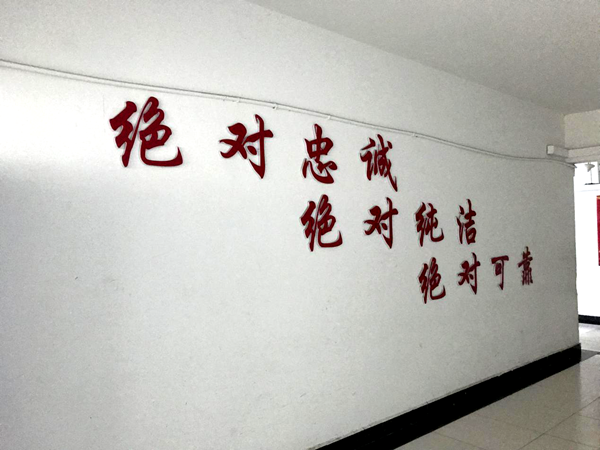 绝对忠诚
绝对纯洁
绝对可靠